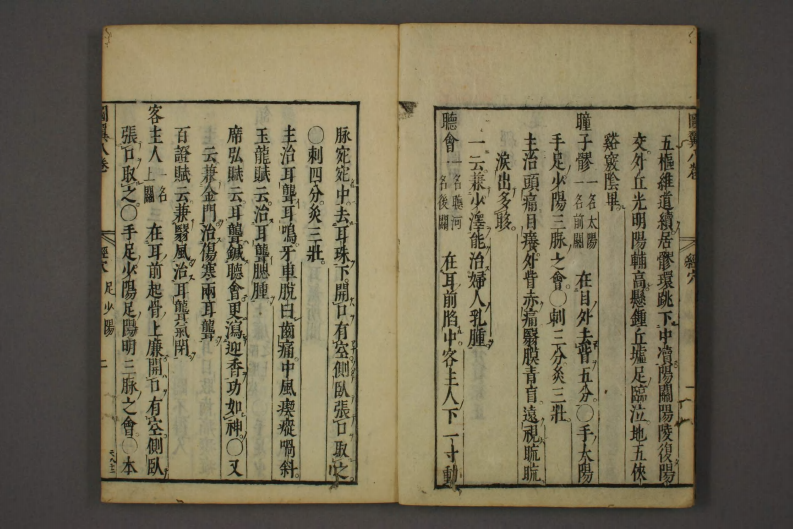 圖翼八卷
經穴
一
五樞維道續居髎環跳下中瀆陽關陽陵復陽
交外丘光明陽輔高懸鍾丘墟足臨泣地五俠
谿竅陰畢
瞳子髎一名太陽一名前關 在目外去眥五分〇手太陽
手足少陽三脉之會〇刺三分灸三壯
主治頭痛目癢外眥赤痛翳膜青盲遠視䀮䀮
淚出多眵
一云兼少澤能治婦人乳腫
聽會一名聽河一名後關 在耳前陷中客主人下一寸動
脉宛宛中去耳珠下開口有空側臥張口取之
〇刺四分灸三壯
主治耳聾耳鳴牙車脫臼齒痛中風瘈瘲喎斜
玉龍賦云治耳聾腮腫
席弘賦云耳聾鍼聽會更瀉迎香功如神〇又
云兼金門治傷寒兩耳聾
百證賦云兼翳風治耳聾氣閉
客主人一名上關 在耳前起骨上廉開口有空側臥
張口取之〇手足少陽足陽明三脉之會〇本
圖翼八卷
經穴 足少陽
二